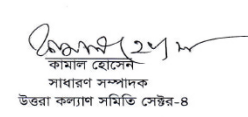 কামাল হোসেন
সাধারণ সম্পাদক
উত্তরা কল্যাণ সমিতি সেক্টর-৪